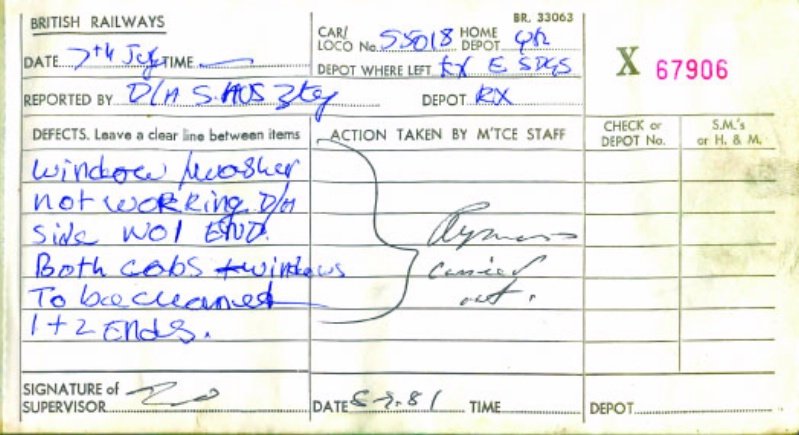 BRITISH RAILWAYS
BR. 33063
DATE 7th July TIME
CAR/ LOCO No. 55018 HOME DEPOT
DEPOT WHERE LEFT KX E SDGS
X 67906
REPORTED BY D/M S.
DEPOT KX
DEFECTS. Leave a clear line between items
ACTION TAKEN BY M'TCE STAFF
CHECK or DEPOT No.
S.M.'s or H. & M.
Window washer
not working D/M
side NO1 END.
Both cabs + windows
To be cleaned
1 + 2 Ends.
carried
out.
SIGNATURE of SUPERVISOR
DATE .81 TIME
DEPOT